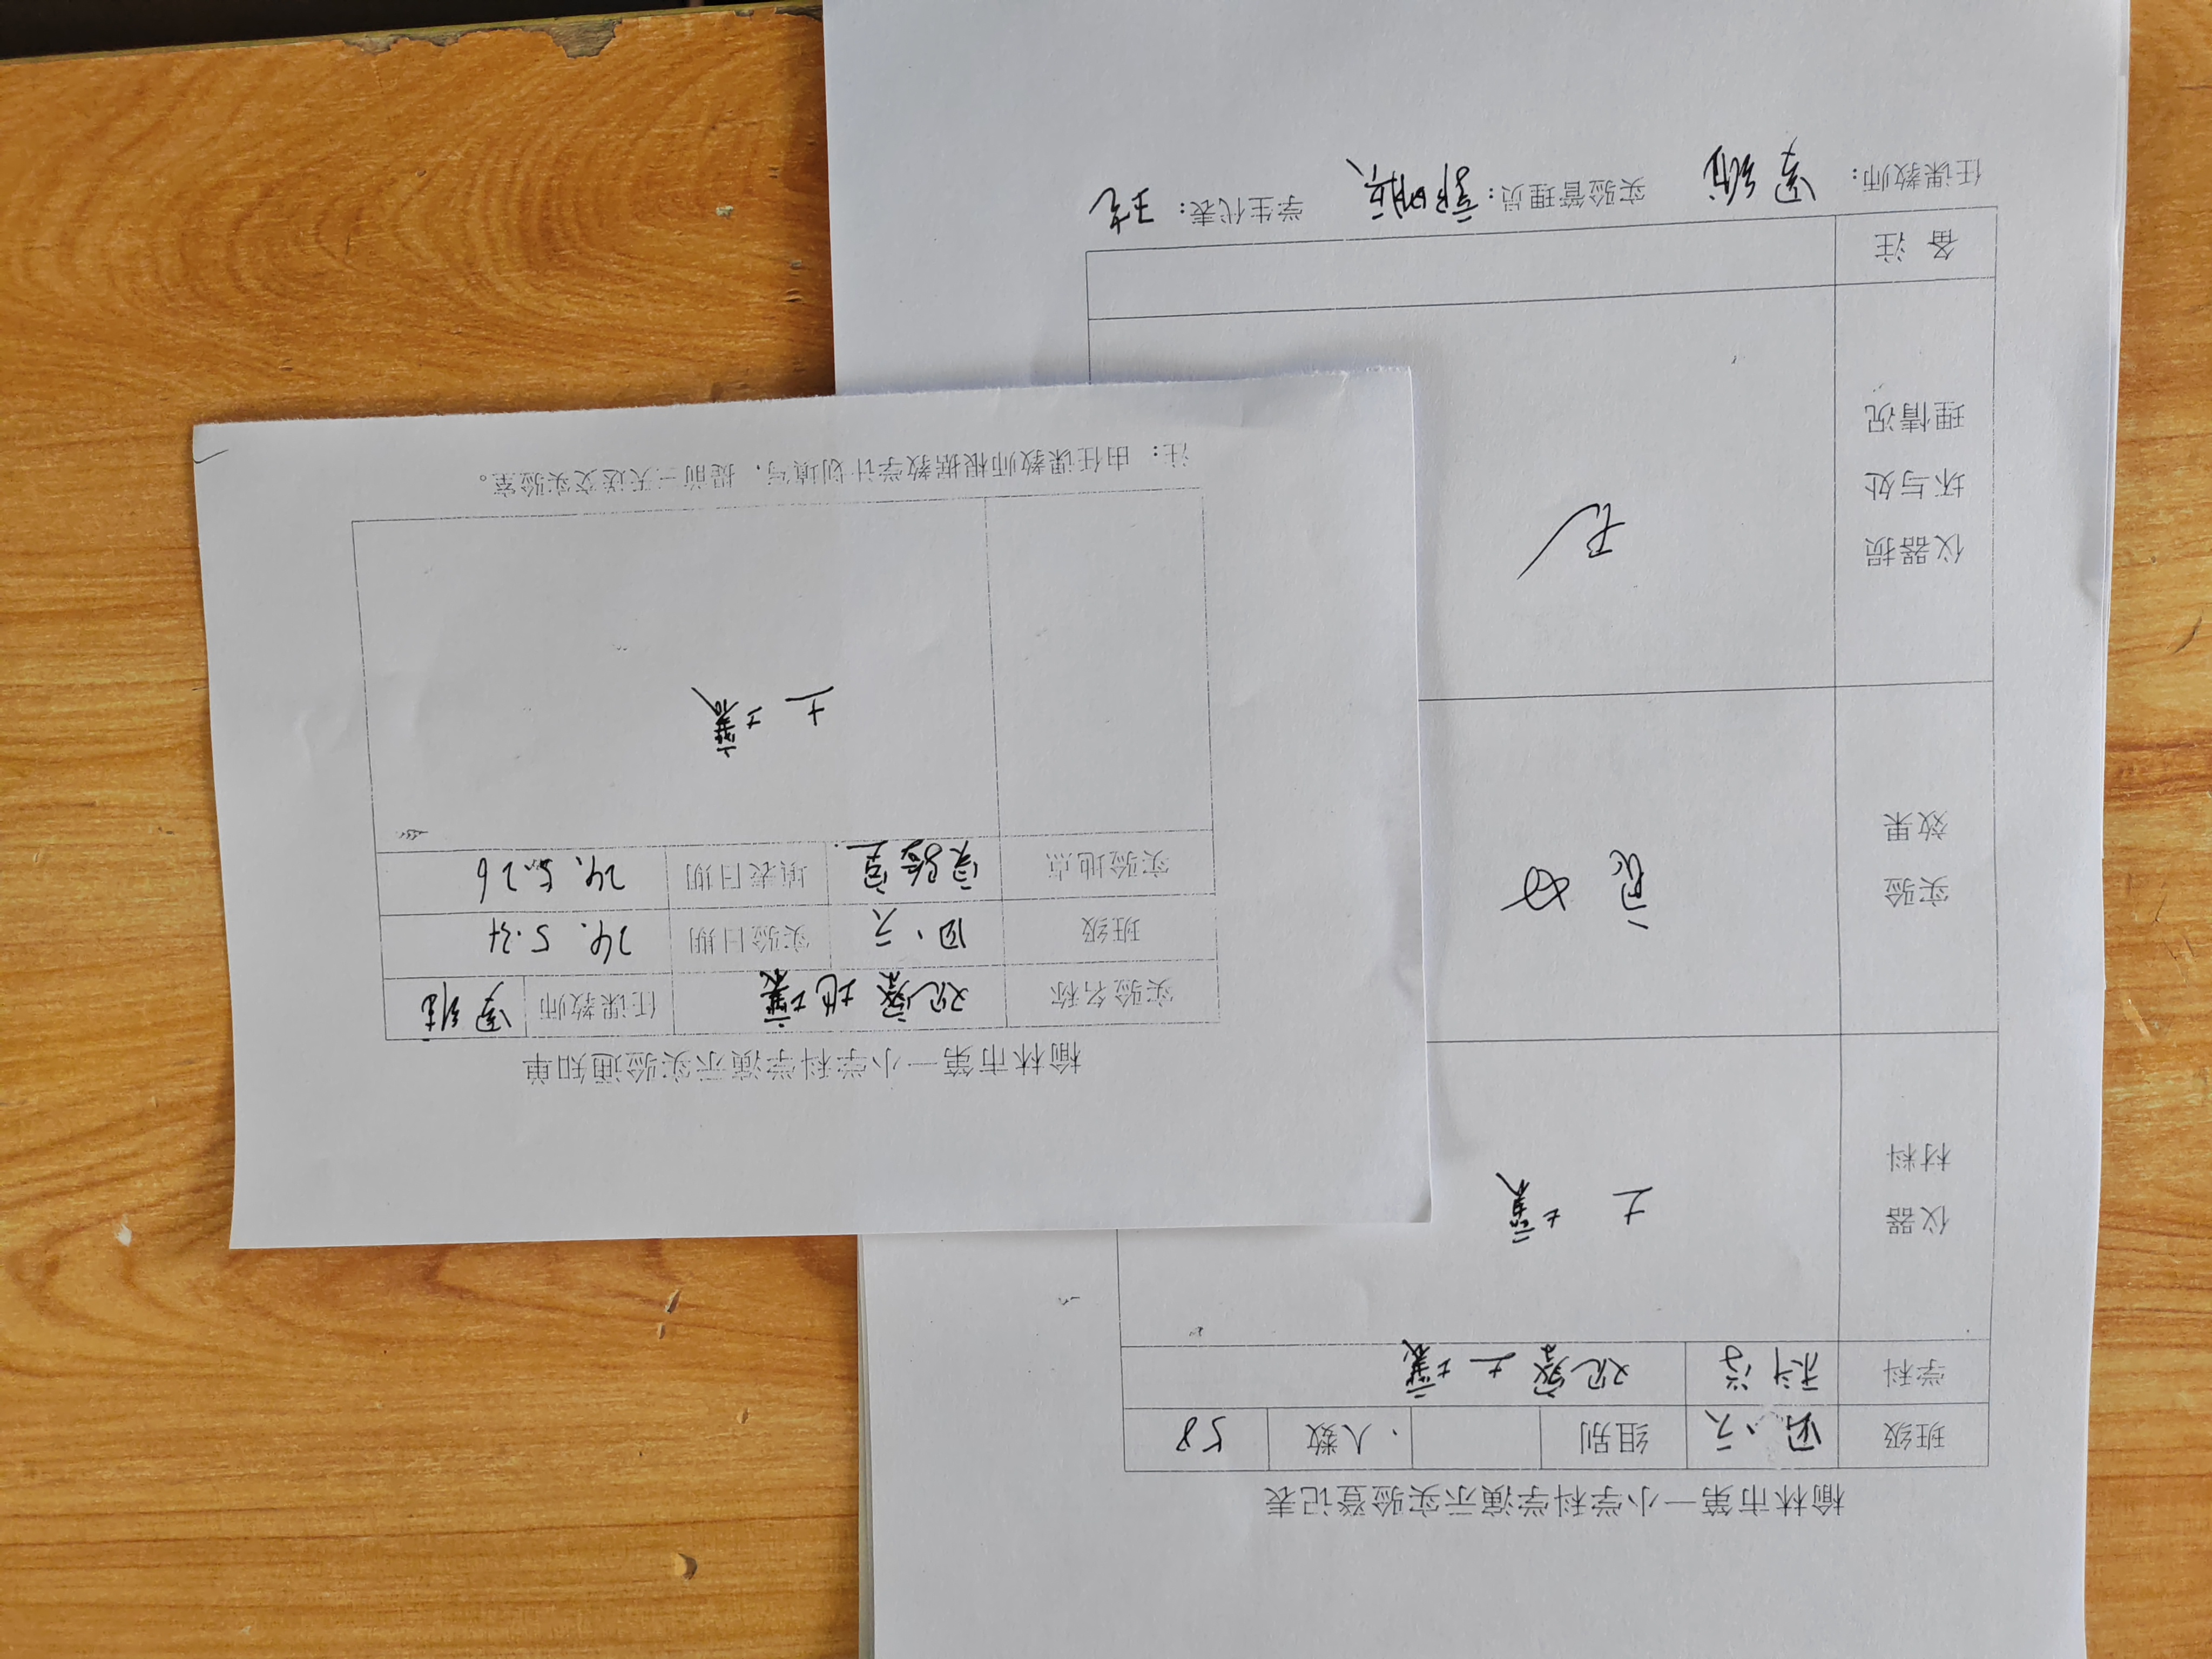 榆林市第一小学科学演示实验通知单
实验名称 观察地壤 任课教师
班级 四、六 实验日期 24. 5.31
实验地点 实验室. 填表日期 24. 5.26
土壤
注：由任课教师根据教学计划填写，提前三天送交实验室。
榆林市第一小学科学演示实验登记表
班级 四、六 组别 人数 58
学科 科学 观察土壤
仪器材料 土壤
实验效果 良好
仪器损坏与处理情况 无
备注
任课教师： 实验管理员： 学生代表：